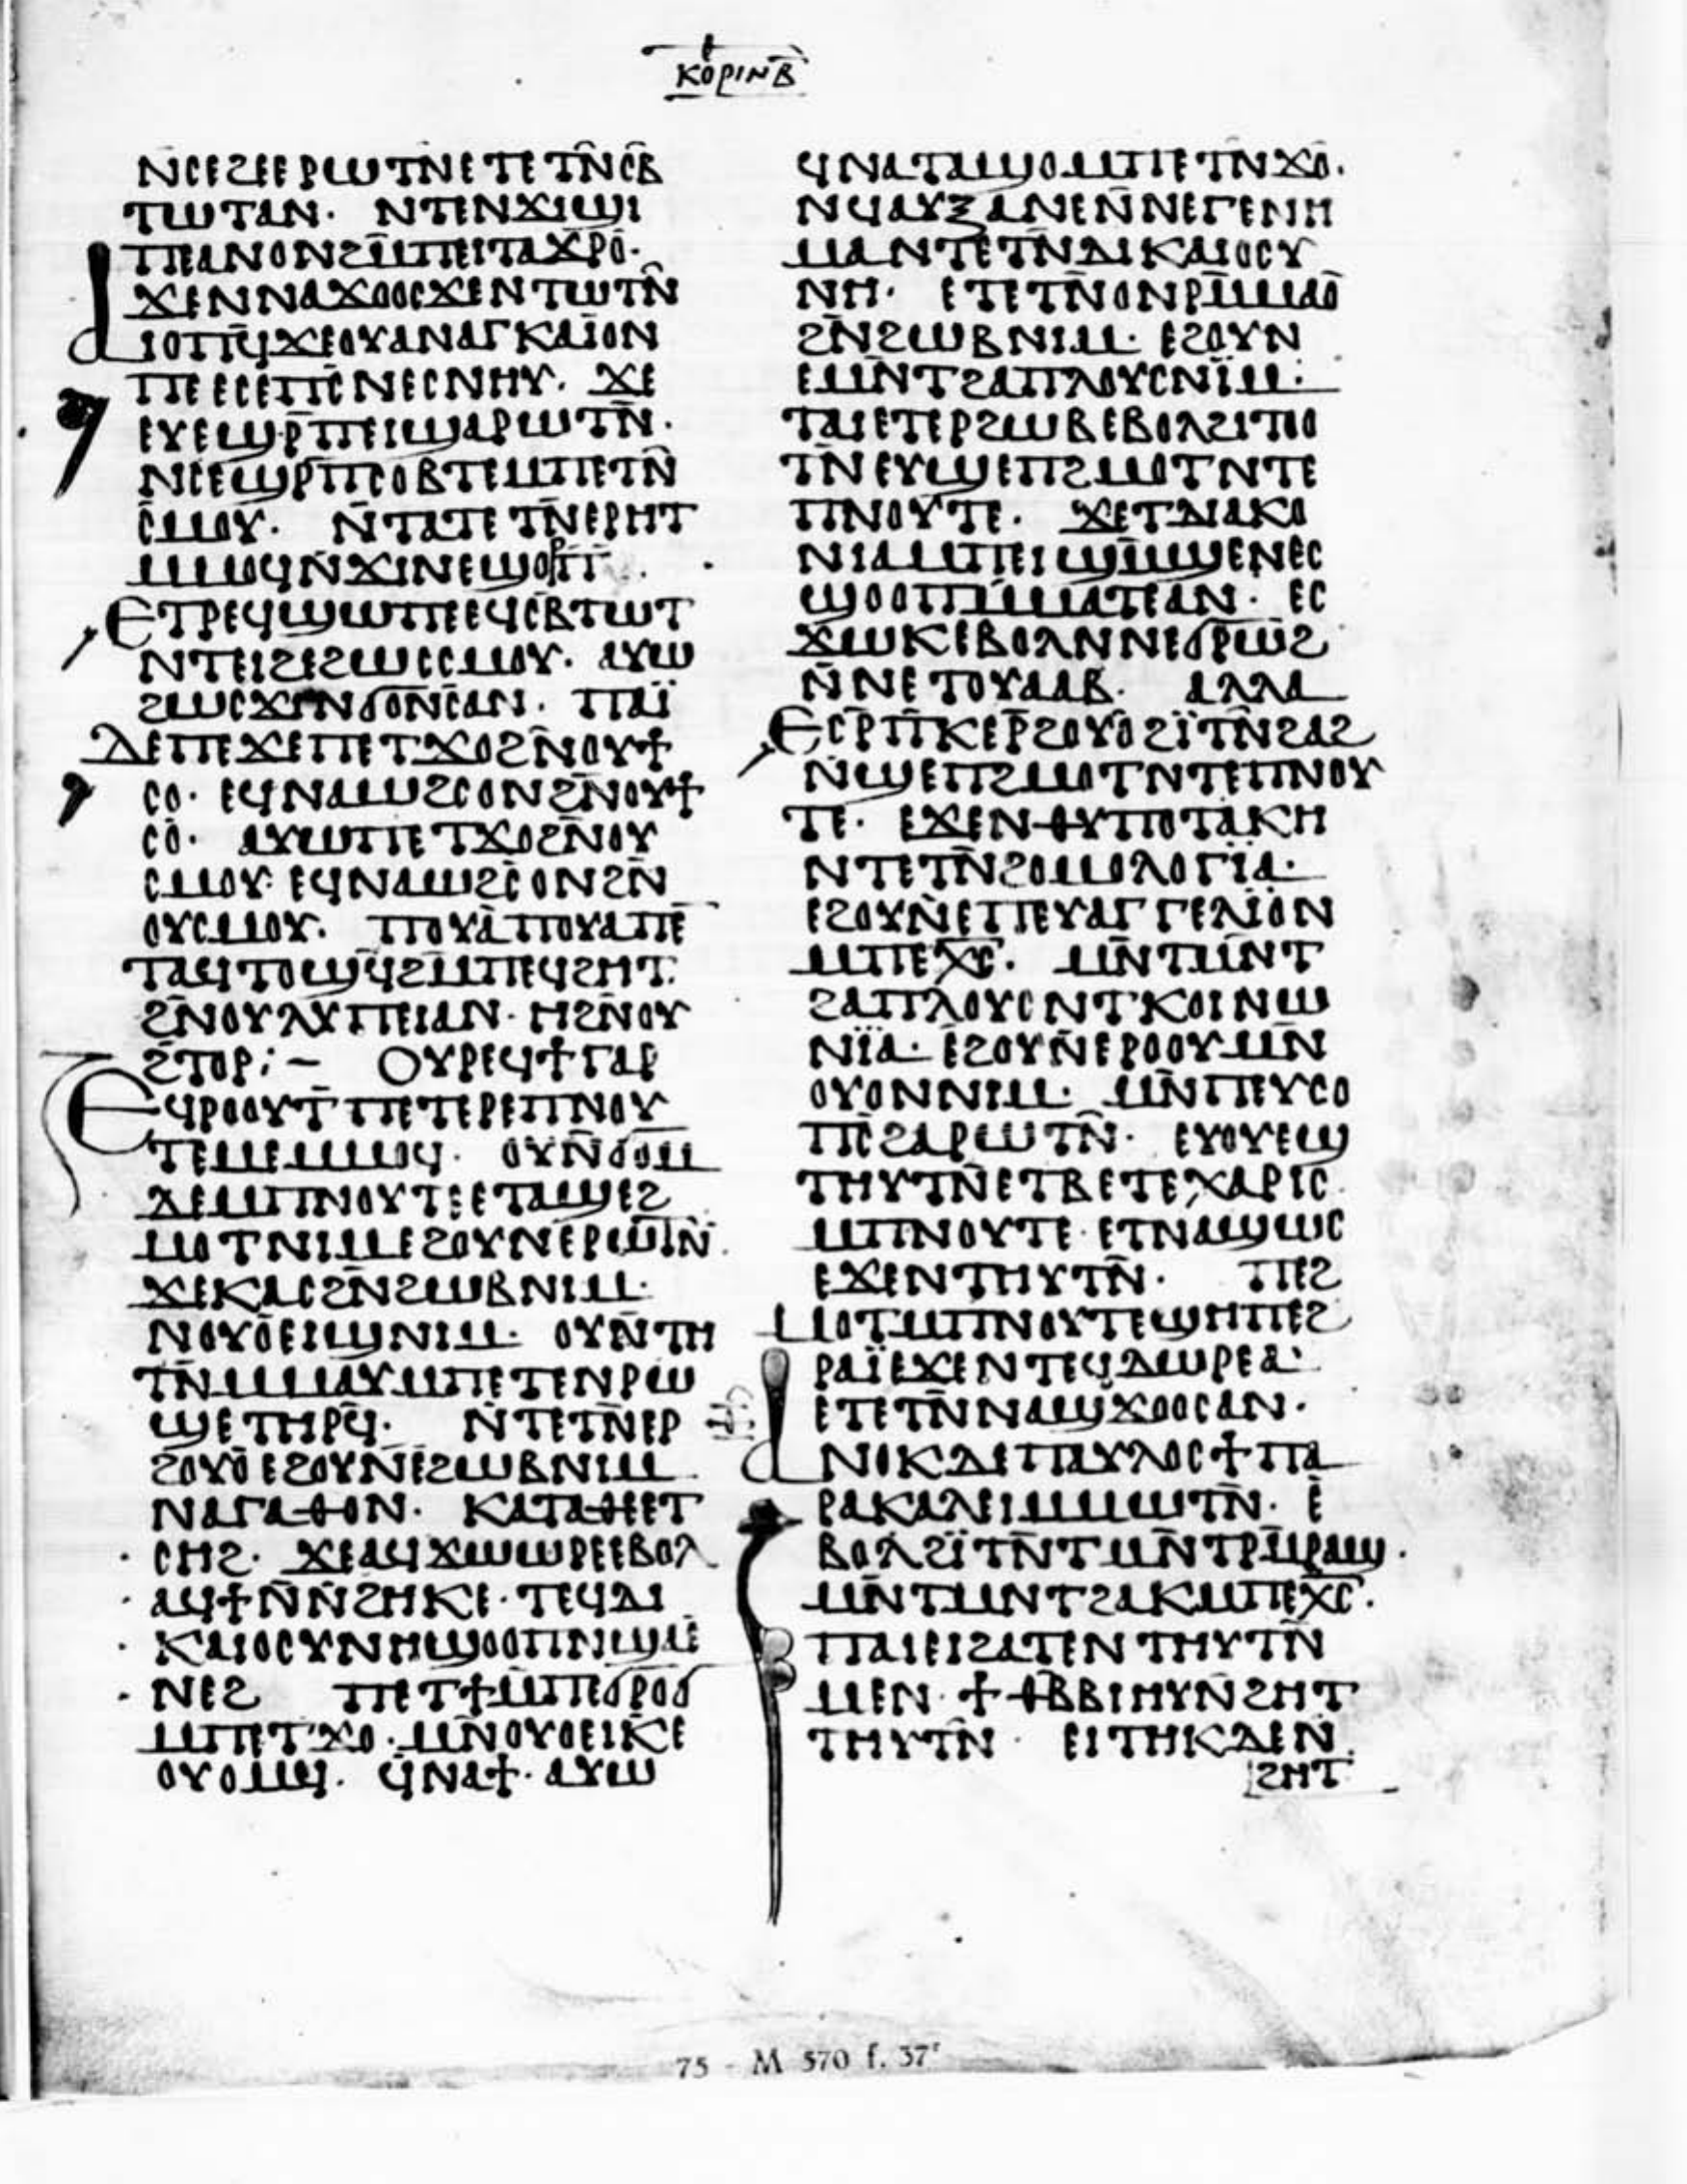 ⲕⲟⲣⲓⲛ ⲃ̄
ⲛⲥⲉϩⲉⲉⲣⲱⲧⲛⲉⲧⲉⲧⲛ̄ⲥⲃ̄
ⲧⲱⲧⲁⲛ· ⲛⲧⲛ̄ϫⲓϣⲓ
ⲡⲉⲁⲛⲟⲛϩⲙ̄ⲡⲉⲓⲧⲁϫⲣⲟ·
ϫⲉⲛⲛⲁϫⲟⲟⲥϫⲉⲛⲧⲱⲧⲛ̄
ⲁⲓⲟⲡϥ̄ϫⲉⲟⲩⲁⲛⲁⲅⲕⲁⲓ̈ⲟⲛ
ⲡⲉⲉⲥⲉⲡⲥ̄ⲛⲉⲥⲛⲏⲩ· ϫⲉ
ⲉⲩⲉϣⲣ̄ⲡⲉⲓϣⲁⲣⲱⲧⲛ̄·
ⲛⲥⲉϣⲣ̄ⲡⲥⲟⲃⲧⲉⲙⲡⲉⲧⲛ̄
ⲥⲙⲟⲩ· ⲛ̄ⲧⲁⲧⲉⲧⲛ̄ⲉⲣⲏⲧ
ⲙⲙⲟϥⲛ̄ϫⲓⲛⲉϣⲟⲣⲡ̄·
ⲉⲧⲣⲉϥϣⲱⲡⲉⲉϥⲥⲃ̄ⲧⲱⲧ
ⲛⲧⲉⲓϩⲉϩⲱⲥⲥⲙⲟⲩ· ⲁⲩⲱ
ϩⲱⲥϫⲓⲛϭⲟⲛⲥ̄ⲁⲛ· ⲡⲁⲓ̈
ⲇⲉⲡⲉϫⲉⲡⲉⲧϫⲟϩⲛ̄ⲟⲩϯ
ⲥⲟ· ⲉϥⲛⲁⲱϩⲥⲟⲛϩⲛ̄ⲟⲩϯ
ⲥⲟ· ⲁⲩⲱⲡⲉⲧϫⲟϩⲛ̄ⲟⲩ
ⲥⲙⲟⲩ· ⲉϥⲛⲁⲱϩⲥⲟⲛϩⲛ̄
ⲟⲩⲥⲙⲟⲩ· ⲡⲟⲩⲁⲡⲟⲩⲁⲡⲉ
ⲧⲁϥⲧⲟϣϥ̄ϩⲙ̄ⲡⲉϥϩⲏⲧ·
ϩⲛ̄ⲟⲩⲗⲩⲡⲉⲓⲁⲛ· ⲏϩⲛ̄ⲟⲩ
ϩⲧⲟⲣ:– ⲟⲩⲣⲉϥϯⲅⲁⲣ
ⲉϥⲣⲟⲟⲩⲧ̄ⲡⲉⲧⲉⲣⲉⲡⲛⲟⲩ
ⲧⲉⲙⲉⲙⲙⲟϥ· ⲟⲩⲛ̄ϭⲟⲙ
ⲇⲉⲙⲡⲛⲟⲩⲧⲉⲉⲧⲁϣⲉϩ
ⲙⲟⲧⲛⲓⲙⲉϩⲟⲩⲛⲉⲣⲱⲧⲛ̄·
ϫⲉⲕⲁⲥϩⲛ̄ϩⲱⲃⲛⲓⲙ·
ⲛⲟⲩⲟⲉⲓϣⲛⲓⲙ· ⲟⲩⲛ̄ⲧⲏ
ⲧⲛ̄ⲙⲙⲁⲩⲙⲡⲉⲧⲉⲛⲣⲱ
ϣⲉⲧⲏⲣϥ̄· ⲛ̄ⲧⲉⲧⲛ̄ⲉⲣ
ϩⲟⲩⲟⲉϩⲟⲩⲛⲉϩⲱⲃⲛⲓⲙ
ⲛⲁⲅⲁⲑⲟⲛ· ⲕⲁⲧⲁⲑⲉⲉⲧ
ⲥⲏϩ· ϫⲉⲁϥϫⲱⲱⲣⲉⲉⲃⲟⲗ
ⲁϥϯⲛ̄ⲛ̄ϩⲏⲕⲉ· ⲧⲉϥⲇⲓ
ⲕⲁⲓⲟⲥⲩⲛⲏϣⲟⲟⲡⲛϣⲁⲉ
ⲛⲉϩ ⲡⲉⲧϯⲙ̄ⲡⲉϭⲣⲟϭ
ⲙⲡⲉⲧϫⲟ· ⲙⲛ̄ⲟⲩⲟⲉⲓⲕⲉ
ⲟⲩⲟⲙϥ· ϥⲛⲁϯ· ⲁⲩⲱ
ϥⲛⲁⲧⲁϣⲟⲙⲡⲉⲧⲛϫⲟ·
ⲛϥⲁⲩⲝⲁⲛⲉⲛ̄ⲛⲉⲅⲉⲛⲏ
ⲙⲁⲛⲧⲉⲧⲛ̄ⲇⲓⲕⲁⲓⲟⲥⲩ
ⲛⲏ· ⲉⲧⲉⲧⲛ̄ⲟⲛⲣⲙ̄ⲙⲁⲟ
ϩⲛ̄ϩⲱⲃⲛⲓⲙ· ⲉϩⲟⲩⲛ
ⲉⲙⲛ̄ⲧϩⲁⲡⲗⲟⲩⲥⲛⲓ̈ⲙ:
ⲧⲁⲓⲉⲧⲉⲣϩⲱⲃⲉⲃⲟⲗϩⲓⲧⲟ
ⲧⲛ ⲉⲩϣⲉⲡϩⲙⲟⲧⲛⲧⲉ
ⲡⲛⲟⲩⲧⲉ· ϫⲉⲧⲇⲓⲁⲕⲟ
ⲛⲓⲁⲙⲡⲉⲓϣⲙ̄ϣⲉⲛⲉⲥ
ϣⲟⲟⲡⲙ̄ⲙⲁⲧⲉⲁⲛ· ⲉⲥ
ϫⲱⲕⲉⲃⲟⲗⲛⲛⲉϭⲣⲱϩ
ⲛ̄ⲛⲉⲧⲟⲩⲁⲁⲃ· ⲁⲗⲗⲁ
ⲉⲥⲣ̄ⲡⲕⲉⲣϩⲟⲩⲟϩⲓ̈ⲧⲛ̄ϩⲁϩ
ⲛ̄ϣⲉⲡϩⲙⲟⲧⲛⲧⲉⲡⲛⲟⲩ
ⲧⲉ· ⲉϫⲉⲛⲑⲩⲡⲟⲧⲁⲕⲏ
ⲛⲧⲉⲧⲛ̄ϩⲟⲙⲟⲗⲟⲅⲓ̈ⲁ·
ⲉϩⲟⲩⲛ̄ⲉⲡⲉⲩⲁⲅⲅⲉⲗⲓ̈ⲟⲛ
ⲙⲡⲉⲭ̄ⲥ̄· ⲙⲛ̄ⲧⲙⲛ̄ⲧ
ϩⲁⲡⲗⲟⲩⲥⲛⲧⲕⲟⲓⲛⲱ
ⲛⲓ̈ⲁ· ⲉϩⲟⲩⲛ̄ⲉⲣⲟⲟⲩⲙⲛ̄
ⲟⲩⲟⲛⲛⲓⲙ· ⲙⲛ̄ⲡⲉⲩⲥⲟ
ⲡⲥ̄ϩⲁⲣⲱⲧⲛ̄· ⲉⲩⲟⲩⲉϣ
ⲧⲏⲩⲧⲛ̄ⲉⲧⲃⲉⲧⲉⲭⲁⲣⲓⲥ
ⲙⲡⲛⲟⲩⲧⲉ·ⲉⲧⲛⲁϣⲱⲥ
ⲉϫⲉⲛⲧⲏⲩⲧⲛ̄· ⲡⲉϩ
ⲙⲟⲧⲙⲡⲛⲟⲩⲧⲉϣⲏⲡⲉϩ
ⲣⲁⲓ̈ⲉϫⲉⲛⲧⲉϥⲇⲱⲣⲉⲁ·
ⲉⲧⲉⲧⲛ̄ⲛⲁϣϫⲟⲟⲥⲁⲛ·
ⲁⲛⲟⲕⲇⲉⲡⲁⲩⲗⲟⲥϯⲡⲁ
ⲣⲁⲕⲁⲗⲉⲓⲙⲙⲱⲧⲛ̄· ⲉ
ⲃⲟⲗϩⲓ̈ⲧⲛ̄ⲧⲙⲛ̄ⲧⲣⲙ̄ⲣⲁϣ·
ⲙⲛ̄ⲧⲙⲛⲧϩⲁⲕⲙⲡⲉⲭ̄ⲥ̄·
ⲡⲁⲓⲉⲓϩⲁⲧⲉⲛⲧⲏⲩⲧⲛ̄
ⲙⲉⲛ· ϯⲑⲃⲃⲓⲏⲩⲛϩⲏⲧ
ⲧⲏⲩⲧⲛ̄· ⲉⲓⲧⲏⲕⲇⲉⲛ
ϩⲏⲧ
75 - M 570 f. 37ʳ